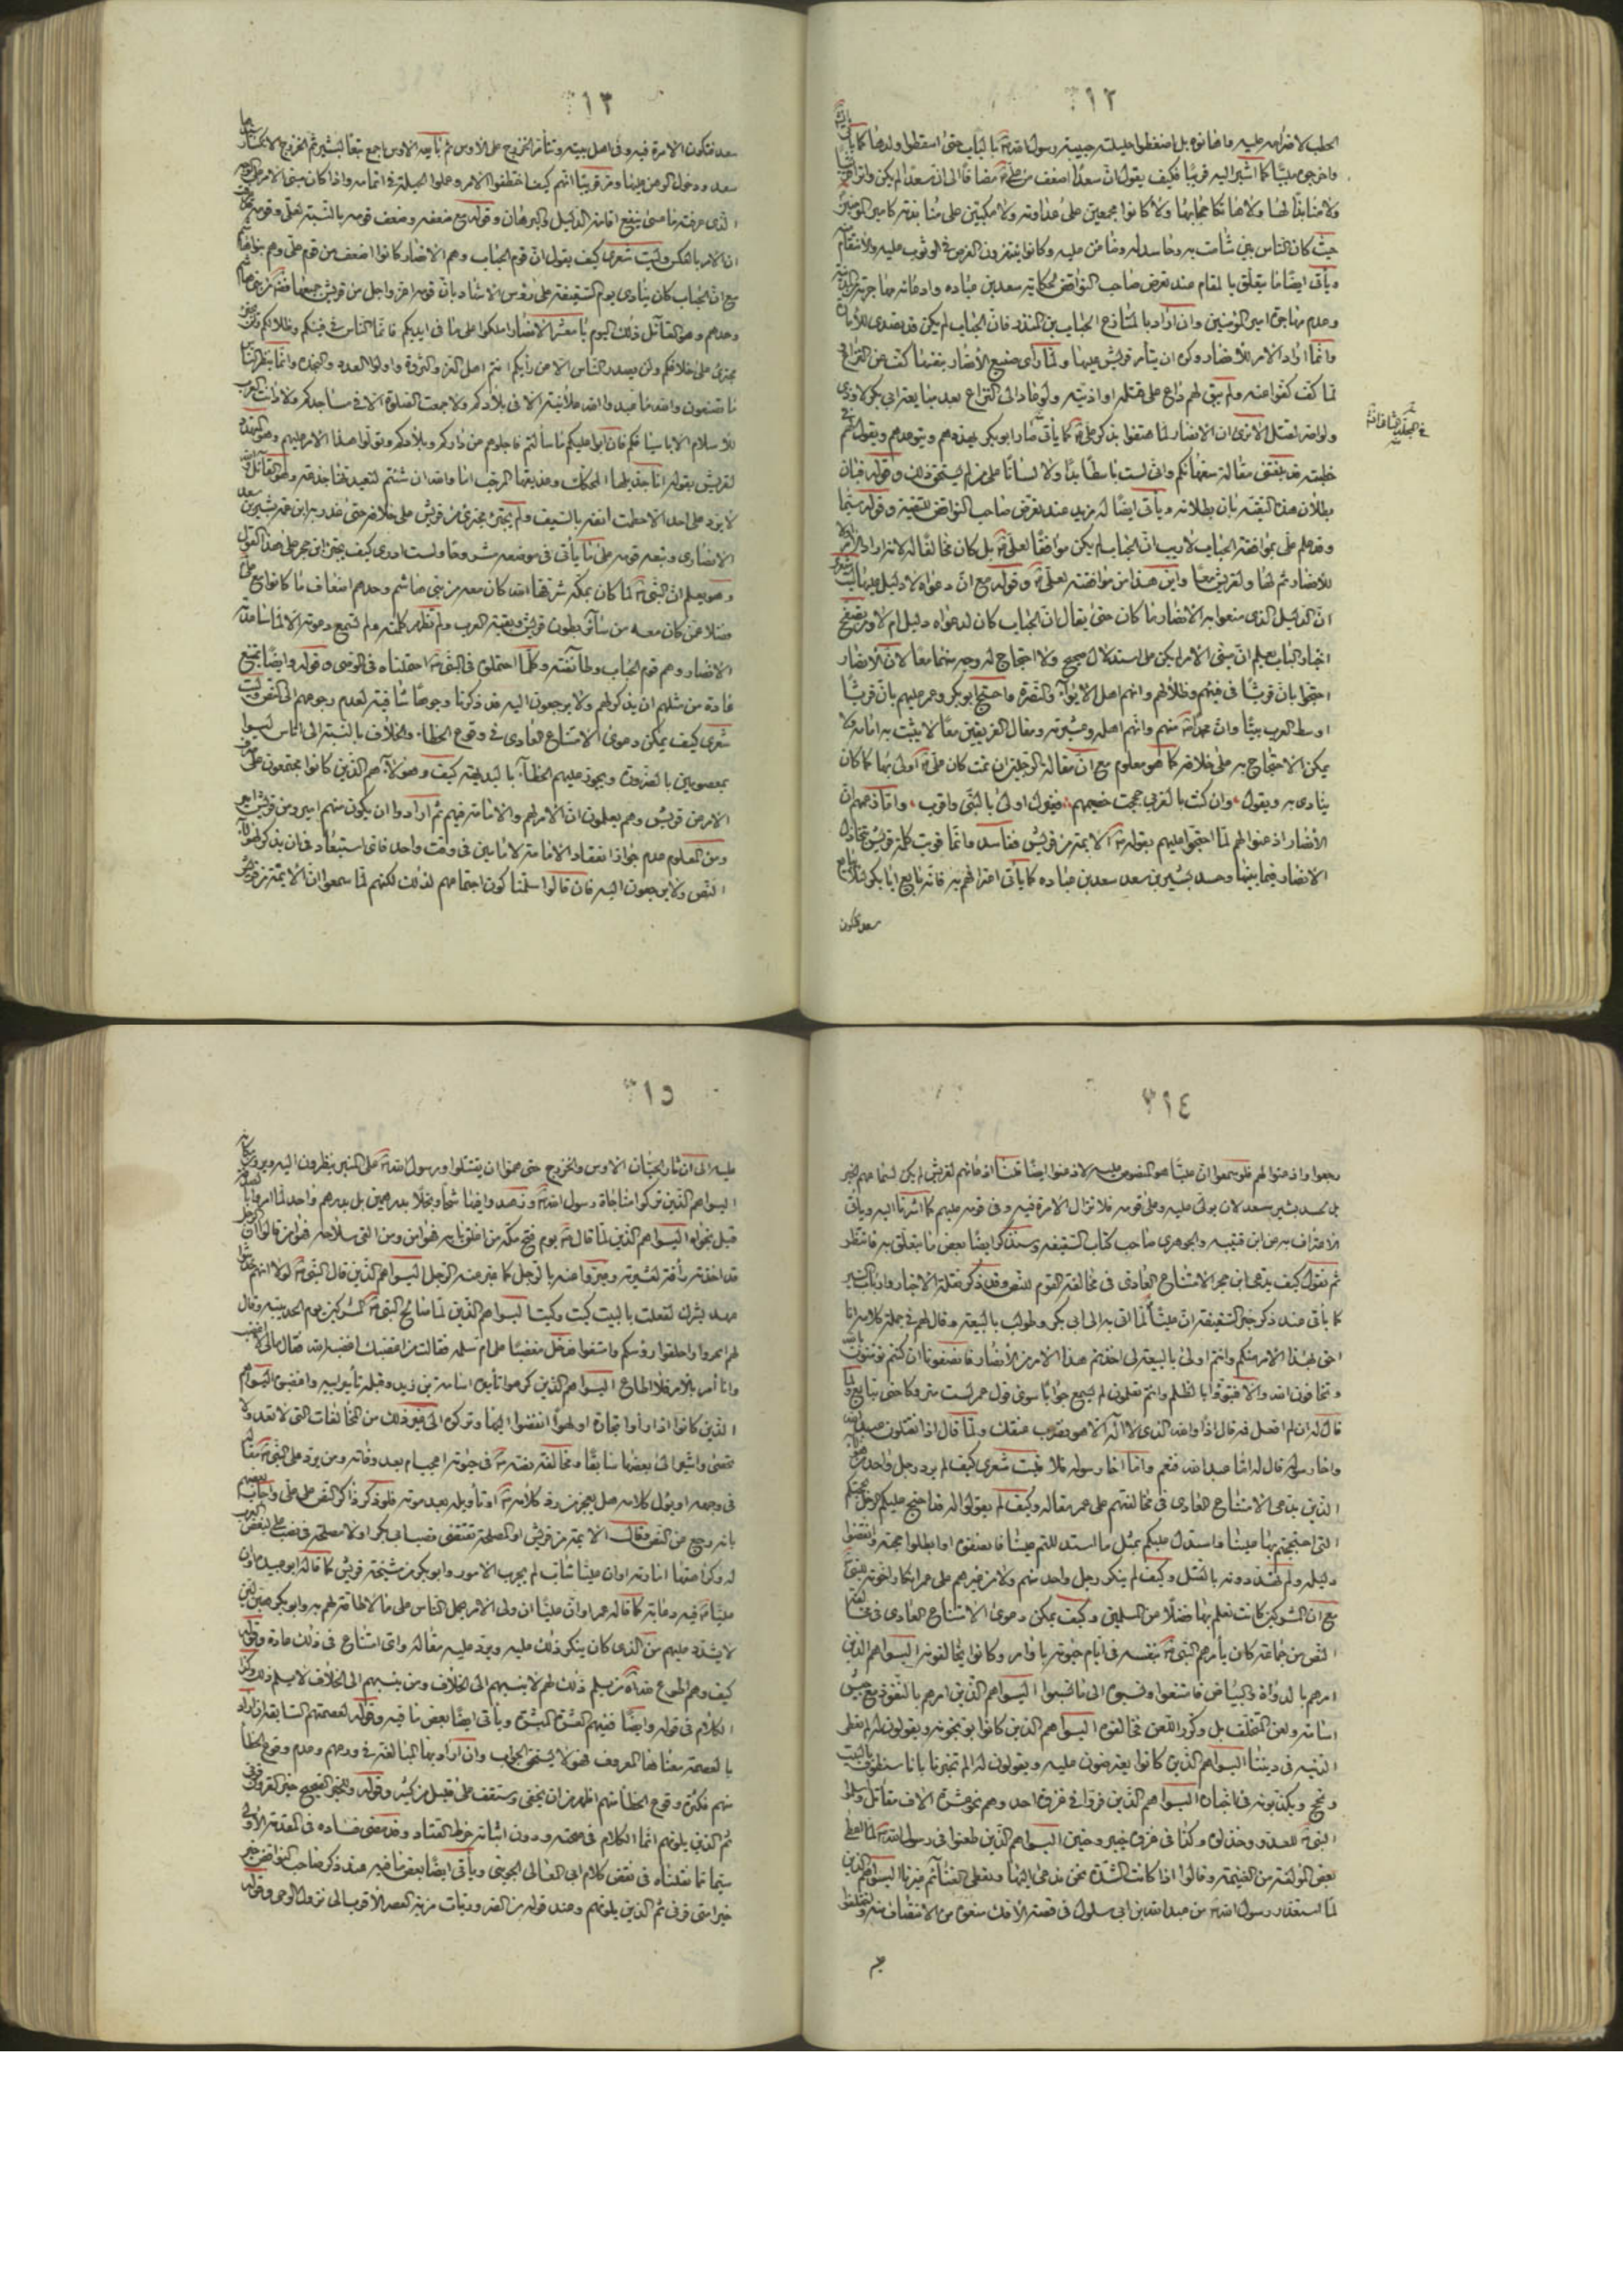 ٣١٢
الحطب لاضرامه عليه وما هابوه بل اضغطوا حليلته حبيبة رسول الله بالباب حتى اسقطوا ولدها كما
واخرجوه ملببا كما اشير اليه قريبا فكيف يقول ان سعدا اضعف من علي مضافا الى ان سعدا لم يكن
ولا مشابها لها ولا هابتكا حجابها ولا كانوا مجمعين على عداوته ولا مكبين على منابذته كامير المؤمنين
حيث كان الناس بين شامت به وحاسد له وضاغن عليه وكانوا ينتهزون الفرص في الوثوب عليه والانتقام
ويأتي ايضا ما يتعلق بالمقام عند تعرض صاحب النواقض لحكاية سعد بن عباده وادعائه مهاجرته
وعدم مهاجرة امير المؤمنين وان اراد بالمنازع الحباب بن المنذر فان الحباب لم يكن قد تصدى للامارة
وانما اراد الامر للانصار وكره ان يتأمر قريش عليها ولما رأى صنيع الانصار بنفسها كف عن النزاع
لما كف كفوا عنه ولم يبق لهم داع على قتله او اذيته ولو عاد الى النزاع بعد مبايعة ابي بكر لاوذي
ولو اصر لقتل الا ترى ان الانصار لما هتفوا بذكر علي كما يأتي صار ابو بكر يهددهم ويتوعدهم ويقول
خطبته قد بلغني مقالة سفهائكم واني لست باسطا يدا ولا لسانا على من لم يستحق ذلك وقوله فبان
بطلان هذا التقية بان بطلانه ويأتي ايضا له مزيد عند تعرض صاحب النواقض للتقية وقوله سيما
وقد علم علي بموافقة الحباب لا ريب ان الحباب لم يكن موافقا لعلي بل كان مخالفا له لانه اراد الامر
للانصار ثم لها ولقريش معا واين هذا من موافقته لعلي وقوله مع ان دعواه لا دليل عليها
ان الدليل الذي منعوا به الانصار ما كان حتى يقال ان الحباب كان لدعواه دليل ام لا ومن تصفح
اخبار الباب يعلم ان مبنى الامر لم يكن على استدلال صحيح ولا احتجاج له وجه منهما معا لان الانصار
احتجوا بان قريشا في فيئهم وظلالهم وانهم اهل الايواء والنصرة واحتج ابو بكر وعمر عليهم بان قريشا
اوسط العرب بيتا وان محمدا منهم وانهم اصله وعشيرته ومقال الفريقين معا لا يثبت به امامة ولا
يمكن الاحتجاج به على خلافه كما هو معلوم مع ان مقالة الرجلين ان تمت كان علي اولى بها كما كان
ينادي به ويقول وان كنت بالقربى حججت خصيمهم فغيرك اولى بالنبي واقرب واما زعمهم ان
الانصار اذعنوا لهم لما احتجوا عليهم بقوله الائمة من قريش ففاسد وانما قويت كلمة قريش بتخاذل
الانصار فيما بينها وحسد بشير بن سعد سعد بن عباده كما يأتي اعترافهم به فانه بايع ابا بكر لئلا
سعد فتكون
٣١٣
سعد فتكون الامرة فيه وفي اهل بيته وتتأمر الخزرج على الاوس ثم بايعه الاوس اجمع تبعا لبشير ثم الخزرج الا
سعد ودخول الوهن عليها ومر قريبا انهم كيف اختطفوا الامر وعملوا الحيلة في اتمامه واذا كان مبنى الامر على
الذي عرفته فما عسى ينفع اقامة الدليل والبرهان وقوله مع ضعفه وضعف قومه بالنسبة لعلي وقومه
ان الامر بالعكس وليت شعري كيف يقول ان قوم الحباب وهم الانصار كانوا اضعف من قوم علي وهم بنو هاشم
مع ان الحباب كان ينادي يوم السقيفة على رؤس الاشهاد بان قومه اعز واجل من قريش جميعا فضلا عن بني هاشم
وحدهم وهو القائل ذلك اليوم يا معشر الانصار املكوا على ما في ايديكم فانما الناس في فيئكم وظلالكم ولن
يجترئ على خلافكم ولن يصدر الناس الا عن رأيكم انتم اهل العز والثروة واولوا العدد والنجدة وانما ينظر الناس
ما تصنعون والله ما عبد الله علانية الا في بلادكم ولا جمعت الصلوة الا في مساجدكم ولا دانت العرب
للاسلام الا باسيافكم فان ابوا عليكم ما سألتم فاجلوهم عن داركم وبلادكم وتولوا هذا الامر عليهم وهو
لقريش بقوله انا جذيلها المحكك وعذيقها المرجب اما والله ان شئتم لنعيدنها جذعة وهو القائل
لا يرد علي احد الا حطمت انفه بالسيف ولم يجترئ مجترئ من قريش على خلافه حتى غدر به ابن عمه بشير بن
الانصاري وتبعه قومه على ما يأتي في موضعه مشروحا ولست ادري كيف يجترئ ابن حجر على هذا القول
وهو يعلم ان النبي لما كان بمكة شرفها الله كان معه من بني هاشم وحدهم اضعاف ما كانوا مع
فضلا عمن كان معه من سائر بطون قريش وبقية العرب ولم تظهر كلمته ولم تتسع دعوته الا لما ساعدته
الانصار وهم قوم الحباب وطائفته وكلما احتملوه في النبي احتملناه في الوصي وقوله وايضا يمتنع
عادة من مثلهم ان يذكر لهم ولا يرجعون اليه قد ذكرنا وجوها شافية لعدم رجوعهم الى النص وليت
شعري كيف يمكن دعوى الامتناع العادي في وقوع الخطاء والخلاف بالنسبة الى اناس ليسوا
بمعصومين بالضرورة ويجوز عليهم الخطاء بالبديهة كيف وهؤلاء هم الذين كانوا مجتمعون على
الامر من قريش وهم يعلمون ان الامر لهم والامامة فيهم ثم ارادوا ان يكون منهم امير ومن قريش امير
ومن المعلوم عدم جواز انعقاد الامامة لامامين في وقت واحد فاي استبعاد في ان يذكر لهؤلاء
النص ولا يرجعون اليه فان قالوا سلمنا كون اجتماعهم لذلك لكنهم لما سمعوا ان الائمة من قريش
٣١٤
رجعوا واذعنوا لهم فلو سمعوا ان عليا هو المنصوص عليه لاذعنوا ايضا قلنا اذعانهم لقريش لم يكن لسماعهم الخبر
بل لحسد بشير سعد لان يولى عليه وعلى قومه فلا تزال الامرة فيه وفي قومه عليهم كما اشرنا اليه ويأتي
الاعتراف به من ابن قتيبه والجوهري صاحب كتاب السقيفه وسنذكر ايضا بعض ما يتعلق به فانتظر
ثم نقول كيف يدعي ابن حجر الامتناع العادي في مخالفة القوم للنص وقد ذكر نقلة الاخبار وارباب السير
كما يأتي عند ذكر خبر السقيفة ان عليا لما اتي به الى ابي بكر وطولب بالبيعة وقال لهم في جملة كلامه انا
احق بهذا الامر منكم وانتم اولى بالبيعة لي اخذتم هذا الامر من الانصار فانصفونا ان كنتم تؤمنون
وتخافون الله والا فبوؤا بالظلم وانتم تعلمون لم يسمع جوابا سوى قول عمر لست متروكا حتى تبايع
قال له ان لم افعل فمه قال اذا والله الذي لا اله الا هو نضرب عنقك ولما قال اذا تقتلون عبد الله
واخا رسوله قال له اما عبد الله فنعم واما اخا رسوله فلا فليت شعري كيف لم يرد رجل واحد من هؤلاء
الذين يدعى الامتناع العادي في مخالفتهم على عمر مقاله وكيف لم يقولوا له قد احتج عليكم الرجل بحجتكم
التي احتججتم بها علينا واستدل عليكم بمثل ما استدللتم علينا فانصفوه او ابطلوا حجته وانقضوا
دليله ولم تهددونه بالقتل وكيف لم ينكر رجل واحد منهم ولا من غيرهم على عمر انكار اخوته للنبي
مع ان المشركين كانت تعلم بها فضلا من المسلمين وكيف يمكن دعوى الامتناع العادي في مخالفة
النص من جماعة كان يأمرهم النبي بنفسه في ايام حيوته باوامر وكانوا يخالفونه اليسوا هم الذين
امرهم بالدواة والبياض فامتنعوا ونسبوه الى ما نسبوا اليسوا هم الذين امرهم بالنفوذ مع جيش
اسامة ولعن المتخلف بل وكرر اللعن فخالفوه اليسوا هم الذين كانوا يوبخونه ويقولون له لم نعطى
الدنيه في ديننا اليسوا هم الذين كانوا يعترضون عليه ويقولون له الم تخبرنا بانا سنطوف بالبيت
ونحج ويكذبونه في اخباره اليسوا هم الذين فروا في غزوة احد وهم نحو عشرة الاف مقاتل وسلموا
النبي للعدو وخذلوه وكذا في غزوة خيبر وحنين اليسوا هم الذين طعنوا في رسول الله لما اعطى
بعض المؤلفة من الغنيمة وقالوا اذا كانت الشدة نحن ندعى اليها وتعطى الغنائم غيرنا اليسوا هم الذين
لما استعذر رسول الله من عبد الله بن ابي سلول في قصة الافك منعوه من الانتصاف منه
٣١٥
عليه الى ان ثار الحيان الاوس والخزرج حتى هموا ان يقتتلوا ورسول الله على المنبر ينظرون اليه ويرون
اليسوا هم الذين تركوا مناجاة رسول الله
قبل نجواه اليسوا هم الذين لما قال يوم فتح مكة من اغلق بابه فهو امن ومن القى سلاحه فهو امن قالوا ان
قد اخذته رأفة لعشيرته وعبروا عنه بالرجل كما عبر عنه الرجل اليسوا هم الذين قال النبي لولا انهم حديثوا
عهد بشرك لفعلت بالبيت كيت وكيت اليسوا هم الذين لما صالح النبي المشركين يوم الحديبية وقال
لهم انحروا واحلقوا رؤسكم وامتنعوا فدخل مغضبا على ام سلمه فقالت من اغضبك اغضبه الله فقال مالي لا اغضب
وانا آمر بالامر فلا اطاع اليسوا هم الذين كرهوا تأمير اسامة بن زيد وقبله تأمير ابيه وافضوه اليسوا هم
الذين كانوا اذا رأوا تجارة او لهوا انفضوا اليها وتركوه الى غير ذلك من المخالفات التي لا تعد ولا
تحصى واشير الى بعضها سابقا ومخالفة نفسه في حيوته اعجب ام بعد وفاته ومن يرد على النبي مقاله
في وجهه او يؤل كلامه هل يعجز من رد كلامه او تأويله بعد موته فلو ذكر ذاكر النص على علي واجابه
بانه رجع عن النص وقال الائمة من قريش او المصلحة تقتضي نصب ابي بكر او لا مصلحة في نصب علي لبغض العرب
له وكراهتها امارته او ان عليا شاب لم يجرب الامور وابو بكر من مشيخة قريش كما قاله ابو عبيده او ان
عليا فيه دعابة كما قاله عمر او ان عليا ان ولي الامر حمل الناس على ما لا طاقة لهم به وابو بكر هين لين
لا يشدد عليهم من الذي كان ينكر ذلك عليه ويرد عليه مقاله واي امتناع في ذلك عادة وقوله
كيف وهم اطوع لله من يسلم ذلك لهم لا ينسبهم الى الخلاف ومن ينسبهم الى الخلاف لا يسلم ذلك
الكلام في قوله وايضا ففيهم العشرة المبشرة ويأتي ايضا بعض ما فيه وقوله لعصمتهم السابقة ان اراد
بالعصمة معناها المعروف فهؤلاء يستحق الجواب وان اراد بها المبالغة في ورعهم وعدم وقوع الخطأ
منهم فكثرة وقوع الخطأ منهم اظهر من ان يخفى وستقف على قليل من كثير وقوله وللخبر الصحيح خير القرون قرني
ثم الذين يلونهم انما الكلام في صحته ودون اثباته خرط القتاد وقد مضى فساده في المقدمة الاولى
سيما ما نقلناه في نقض كلام ابي المعالي الجويني ويأتي ايضا بعض ما فيه عند ذكر صاحب النواقض خبر
خير امتي قرني ثم الذين يلونهم وعند قوله من الضروريات مزية العصر الاقرب الى نزول الوحي وقوله